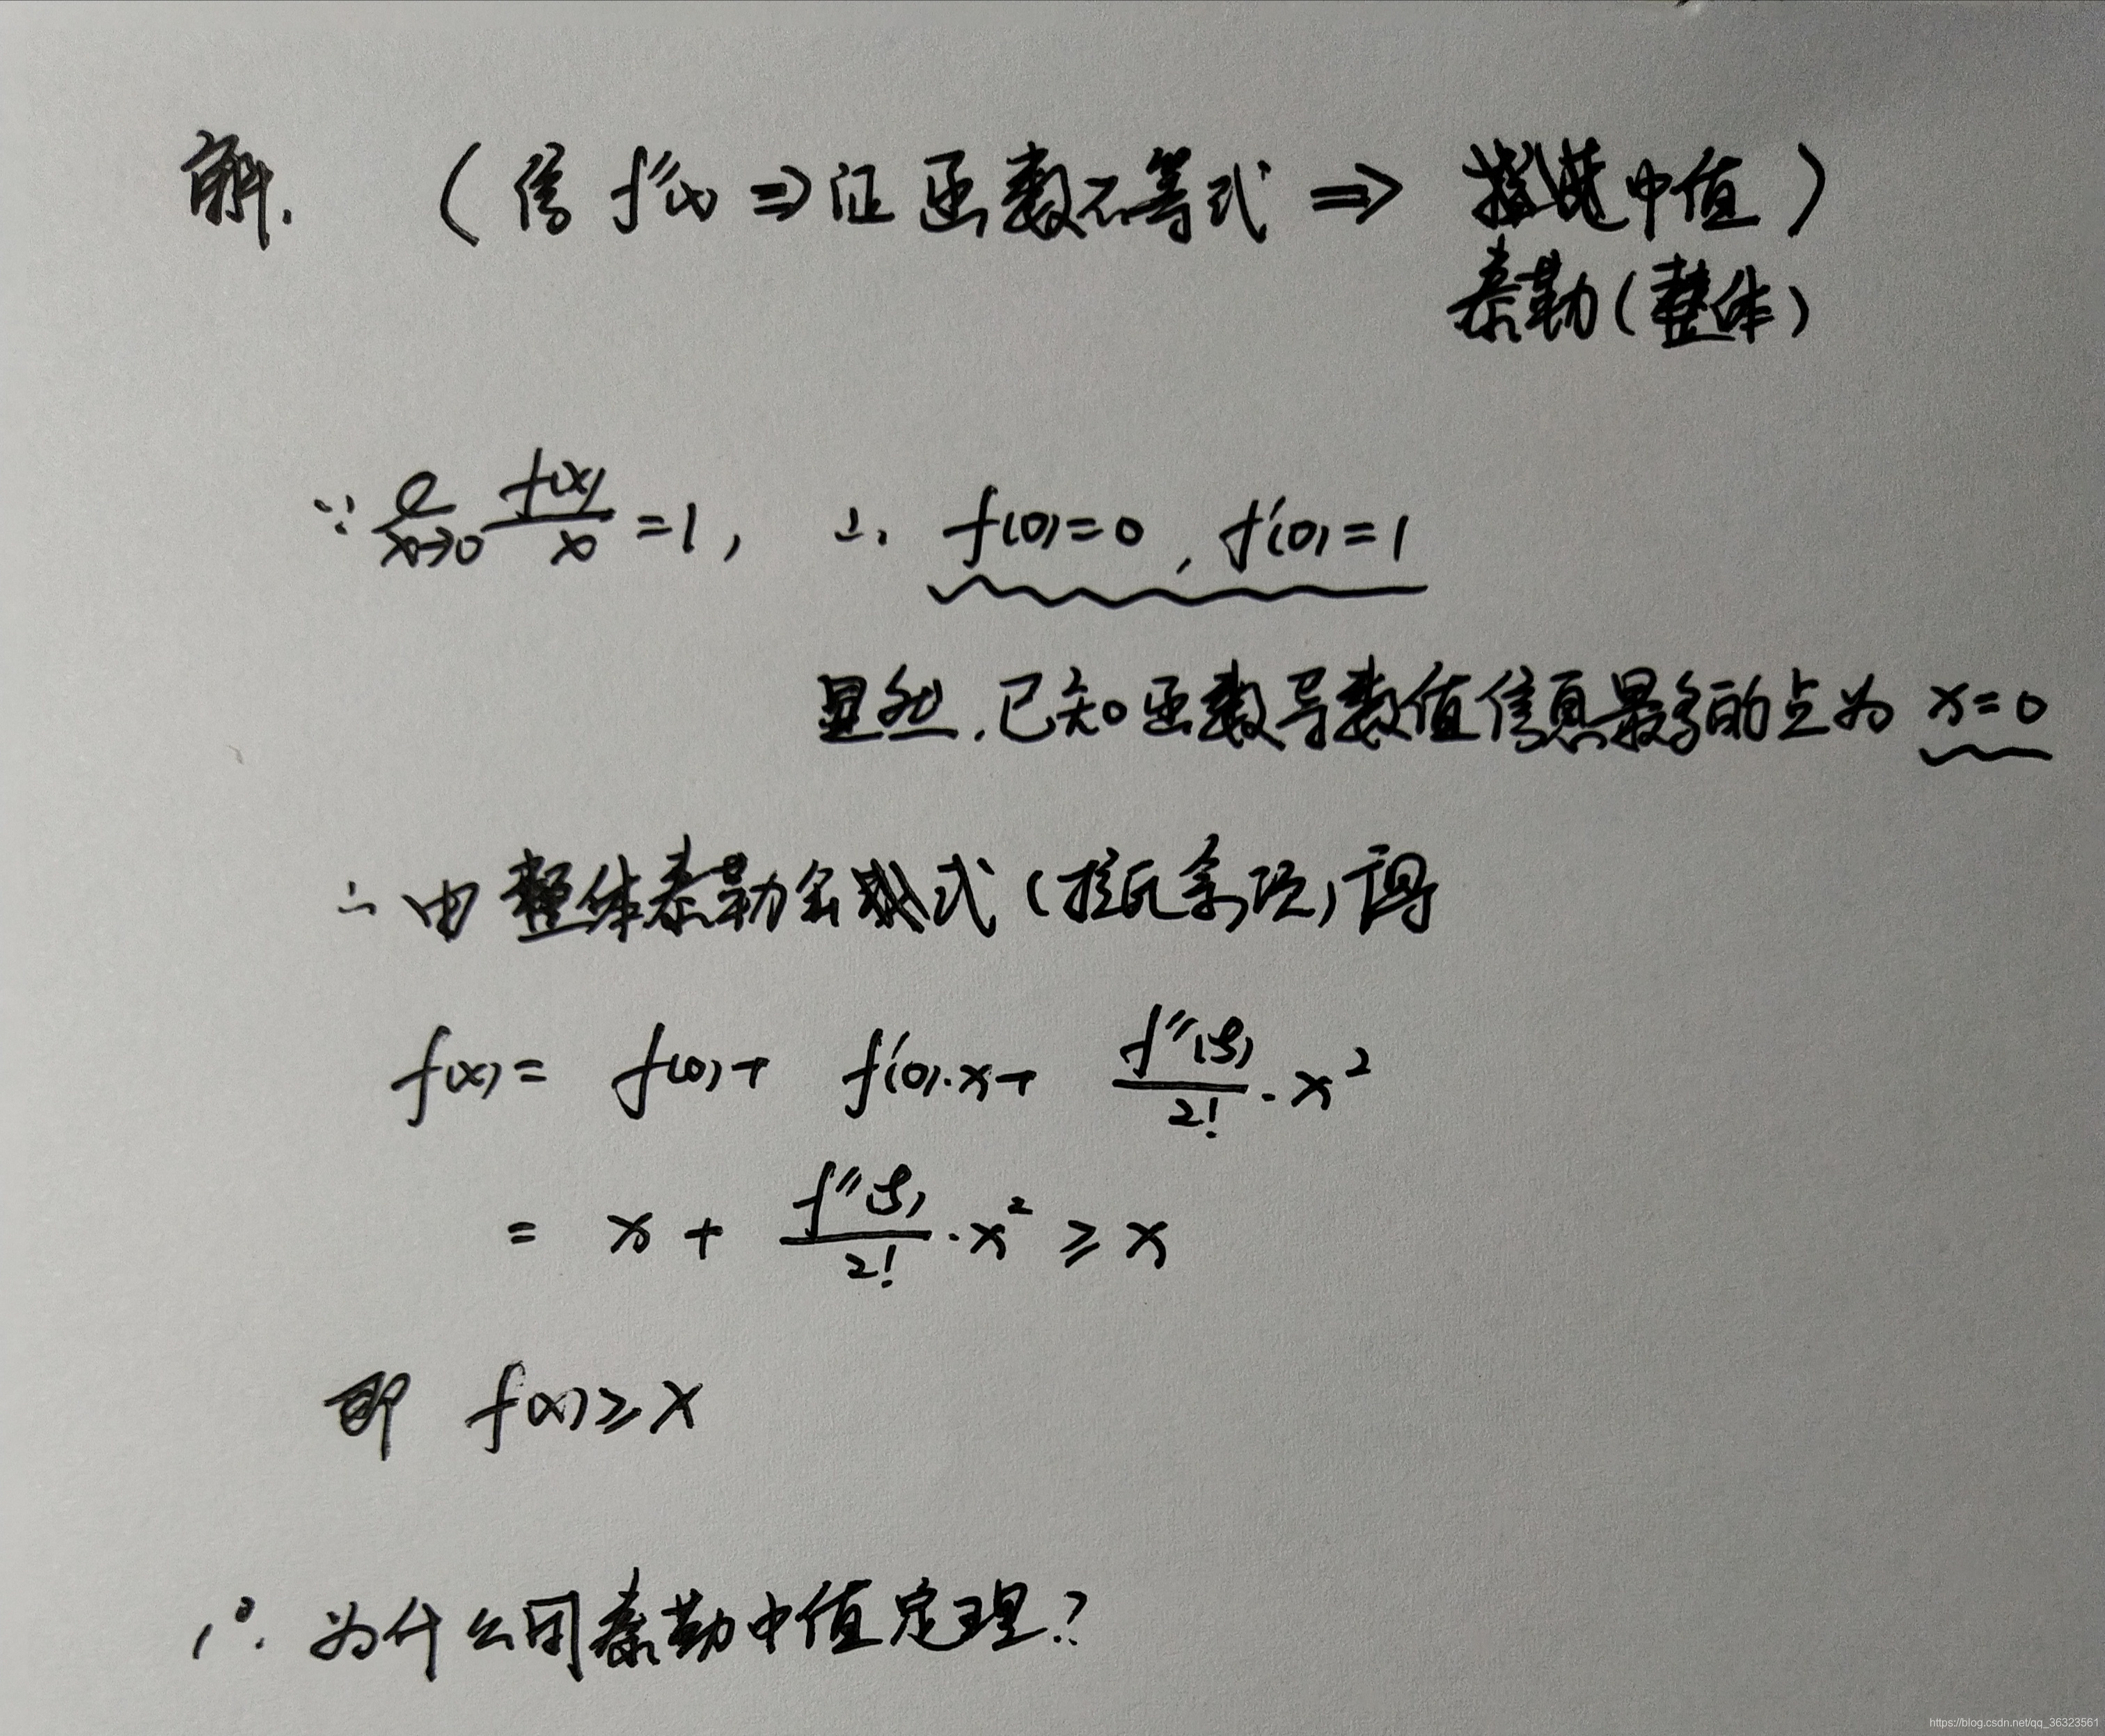 解. (信 f''(x) ⇒ 证函数不等式 ⇒ 中值)
泰勒(整体)
∵ lim x→0 f(x)/x = 1, ∴ f(0)=0, f'(0)=1
显然.已知函数导数值信息最多的点为 x=0
∴ 由整体泰勒公式(拉氏余项)得
f(x)= f(0)+ f'(0)·x+ f''(ξ)/2! · x²
= x + f''(ξ)/2! · x² ≥ x
即 f(x)≥x
1°. 为什么用泰勒中值定理?
https://blog.csdn.net/qq_36323561